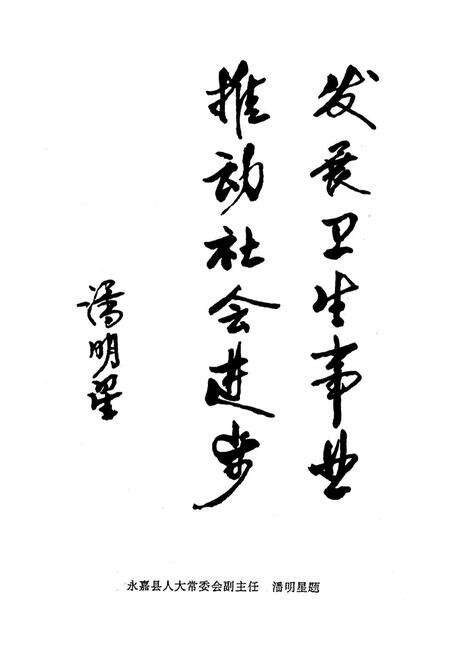 发展卫生事业
推动社会进步
潘明星
永嘉县人大常委会副主任　潘明星题